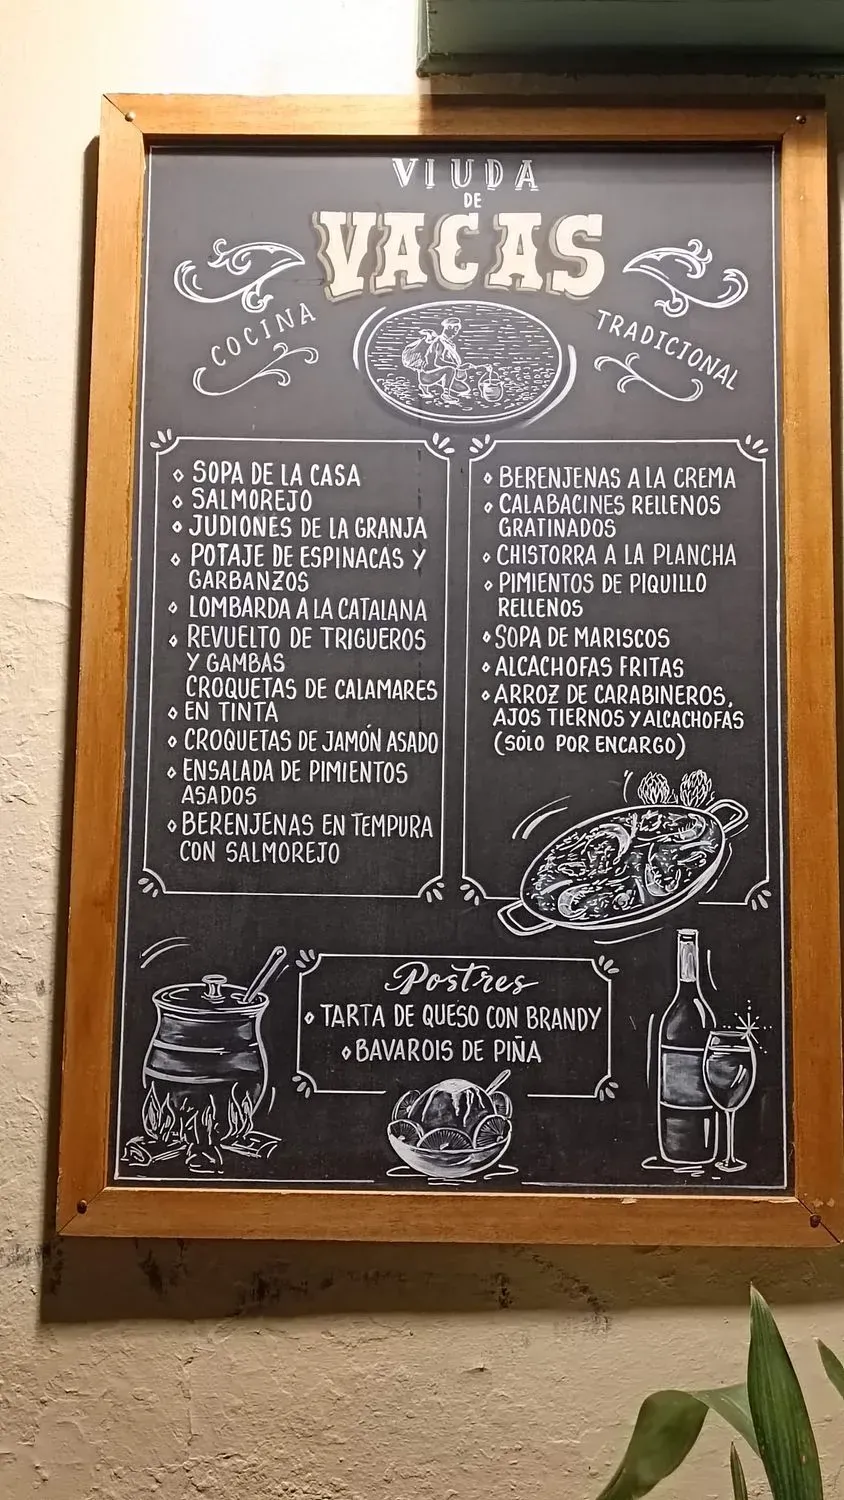 VIUDA
DE
VACAS
COCINA
TRADICIONAL
SOPA DE LA CASA
SALMOREJO
JUDIONES DE LA GRANJA
POTAJE DE ESPINACAS Y
GARBANZOS
LOMBARDA A LA CATALANA
REVUELTO DE TRIGUEROS
Y GAMBAS
CROQUETAS DE CALAMARES
EN TINTA
CROQUETAS DE JAMÓN ASADO
ENSALADA DE PIMIENTOS
ASADOS
BERENJENAS EN TEMPURA
CON SALMOREJO
BERENJENAS A LA CREMA
CALABACINES RELLENOS
GRATINADOS
CHISTORRA A LA PLANCHA
PIMIENTOS DE PIQUILLO
RELLENOS
SOPA DE MARISCOS
ALCACHOFAS FRITAS
ARROZ DE CARABINEROS,
AJOS TIERNOS Y ALCACHOFAS
(SÓLO POR ENCARGO)
Postres
TARTA DE QUESO CON BRANDY
BAVAROIS DE PIÑA